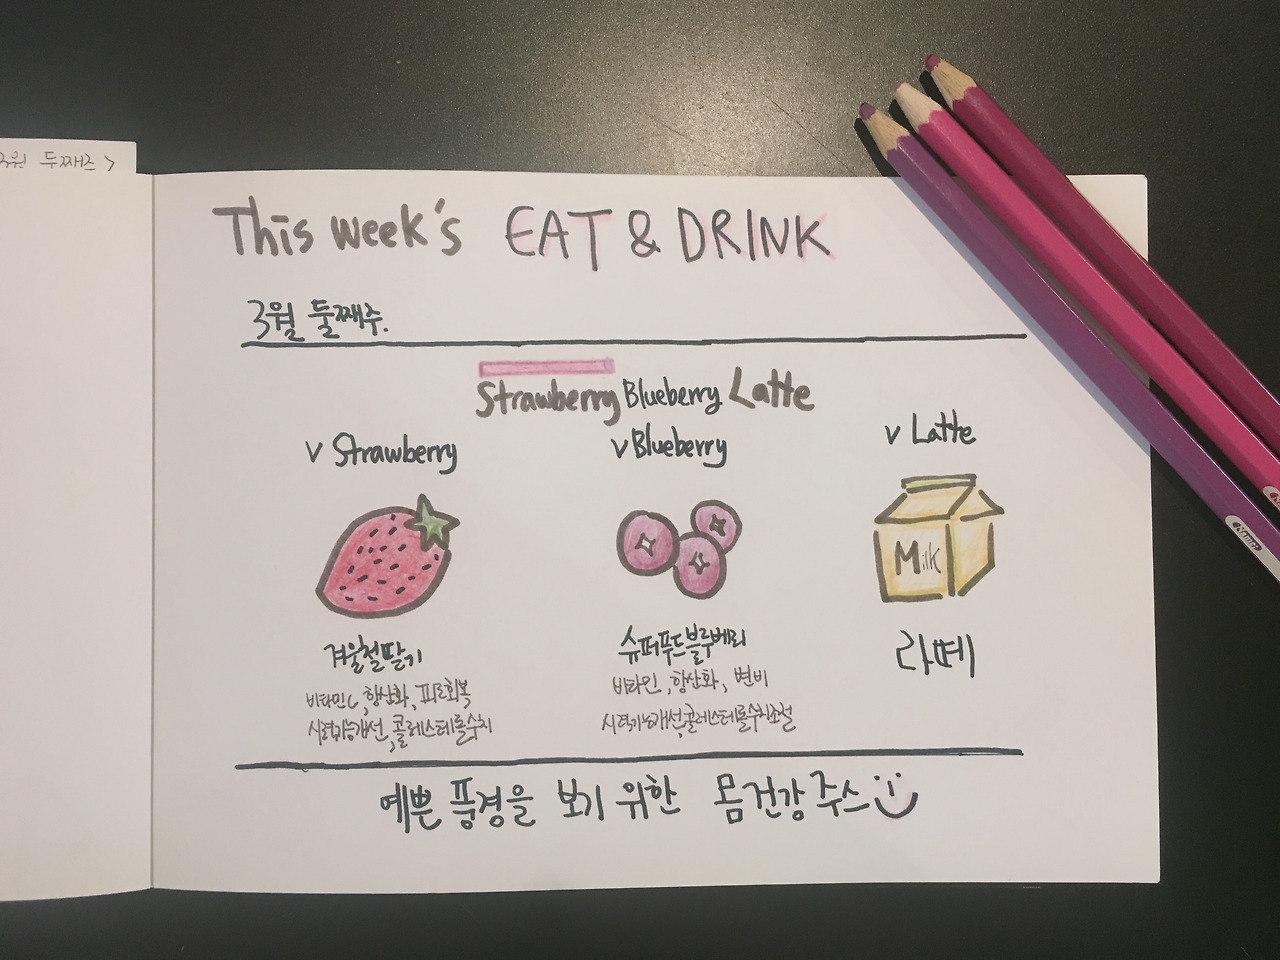 3월 둘째주 >
This week's EAT & DRINK
3월 둘째주.
Strawberry Blueberry Latte
v Strawberry
v Blueberry
v Latte
Milk
겨울철딸기
비타민C, 항산화, 피로회복
시력기능개선, 콜레스테롤수치
슈퍼푸드블루베리
비타민, 항산화, 변비
시력기능개선, 콜레스테롤수치조절
라떼
예쁜 풍경을 보기 위한 몸건강주스